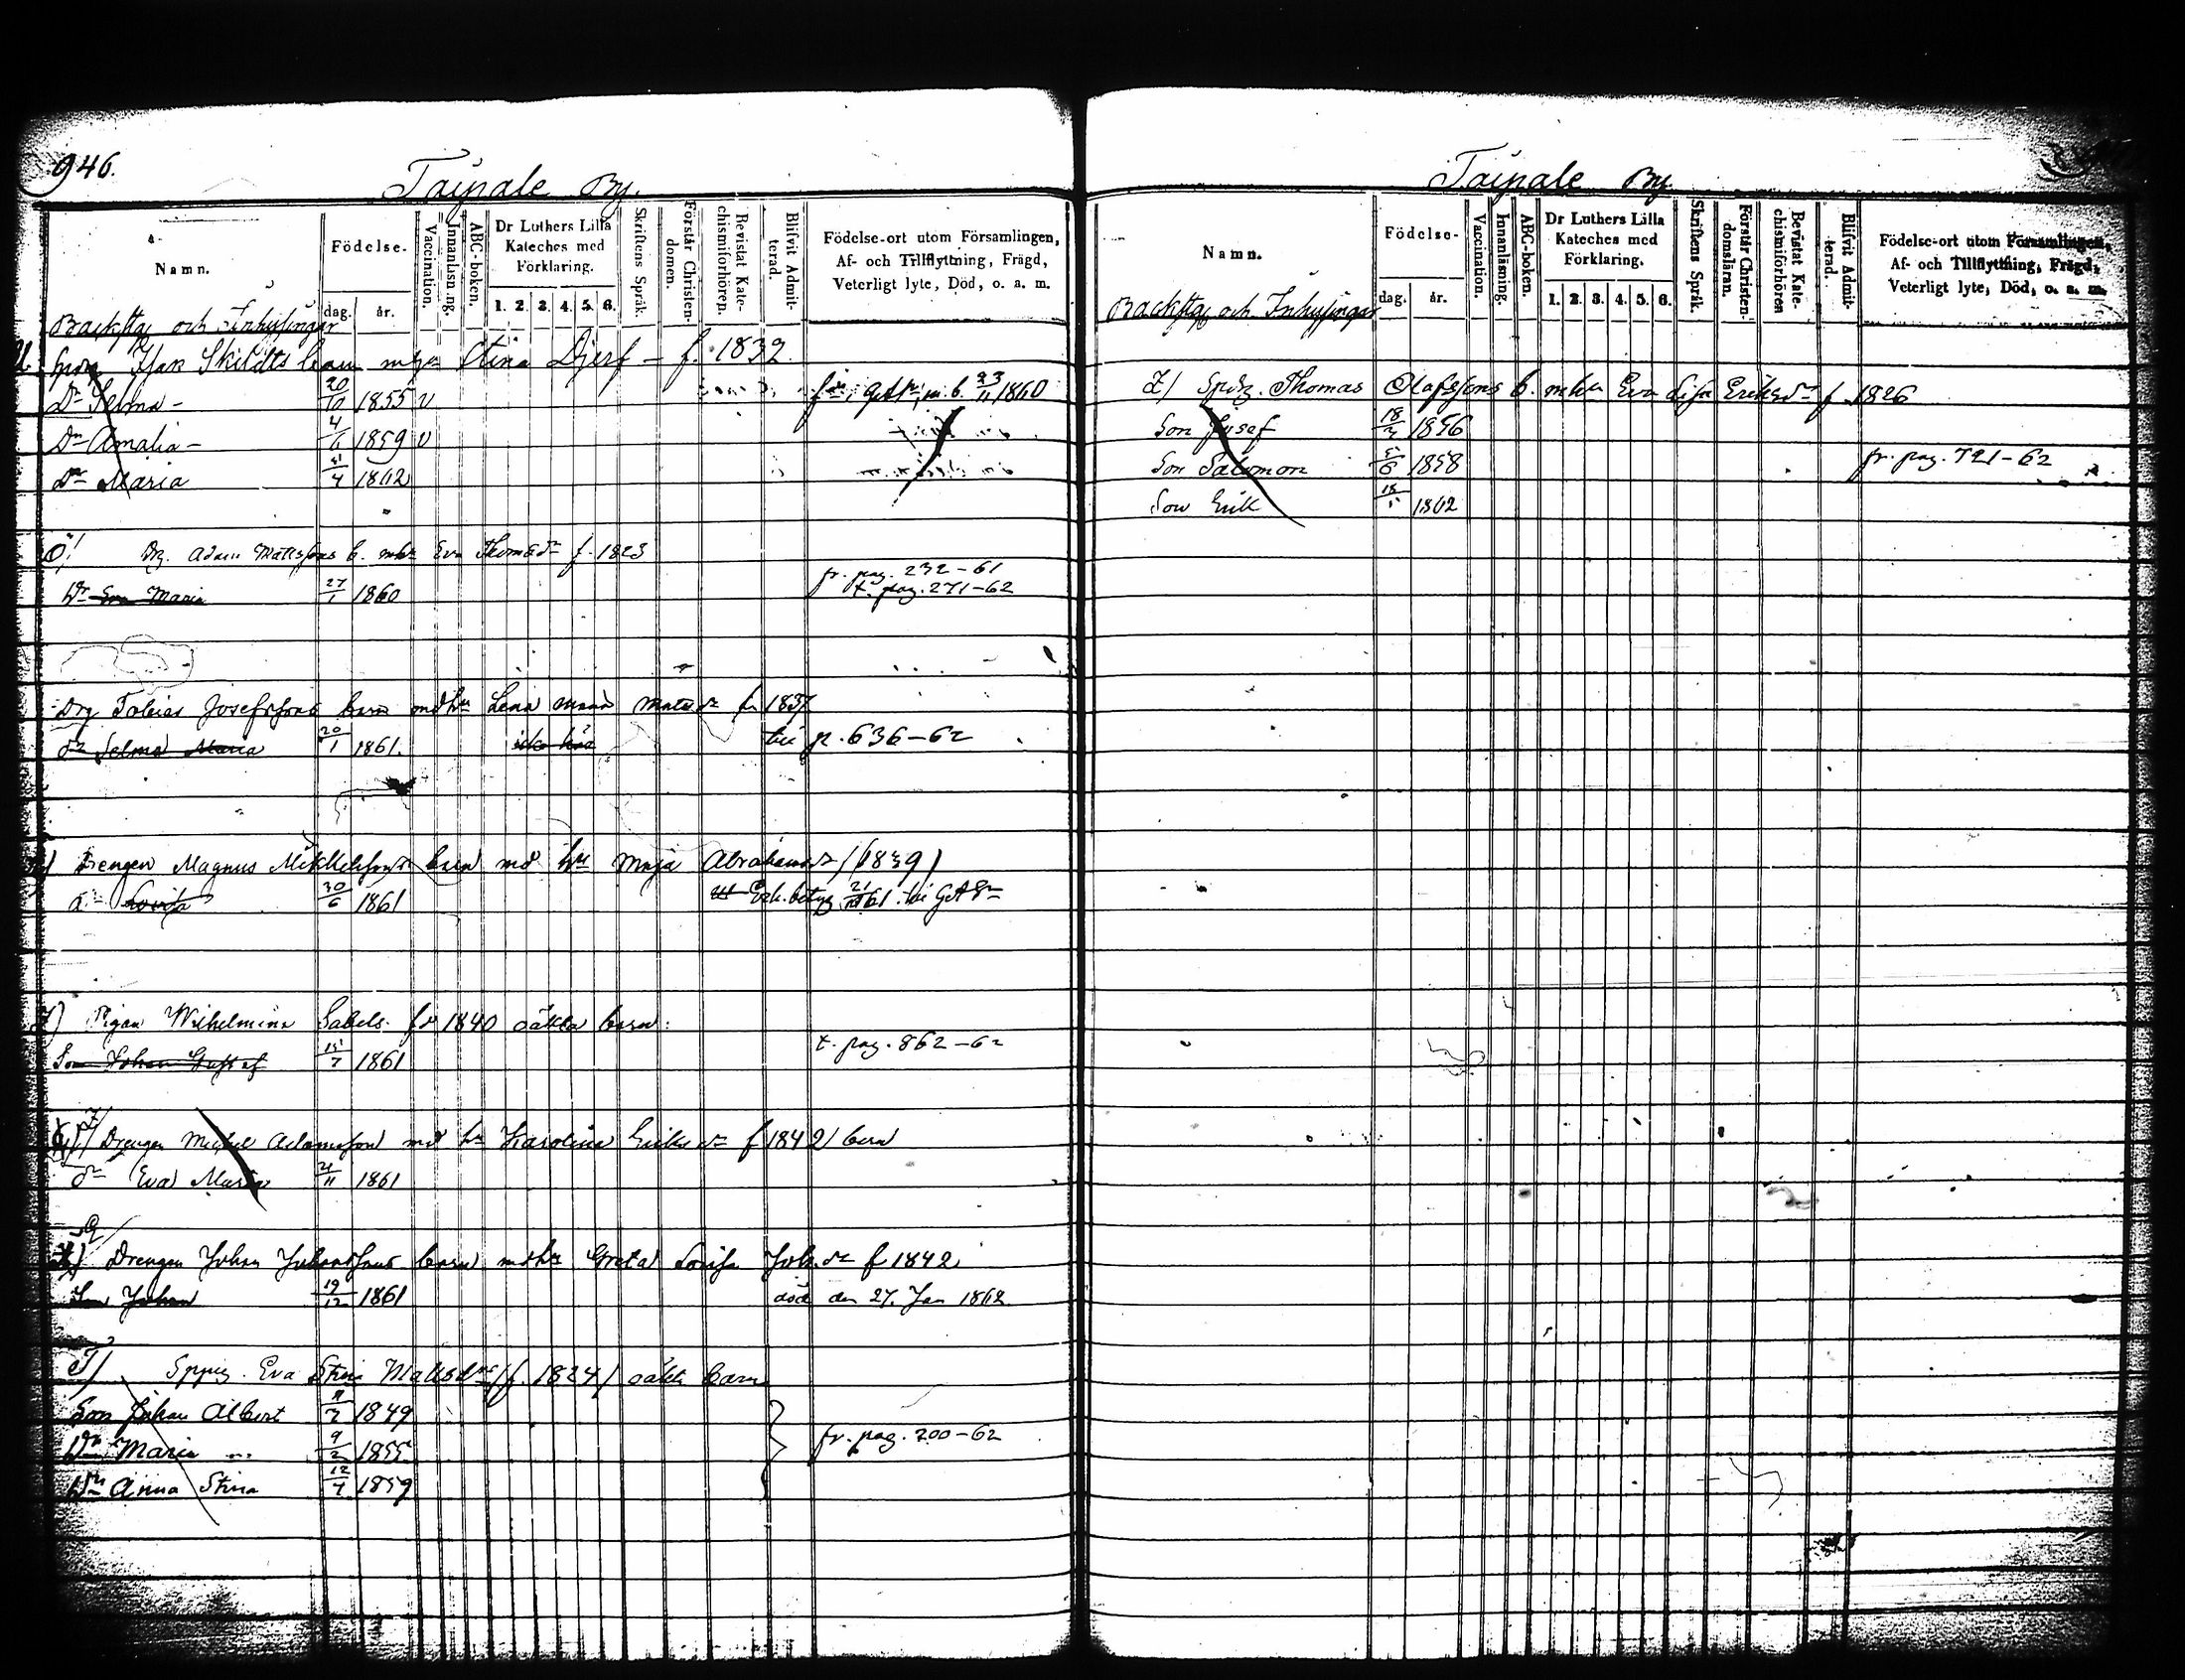 946.
Taipale By.
Namn.
Födelse.
dag. år.
Vaccination.
Innanläsning.
ABC-boken.
Dr Luthers Lilla Kateches med Förklaring.
1. 2. 3. 4. 5. 6.
Skriftens Språk.
Förstår Christendomen.
Bevistat Katechismiförhören.
Blifvit Admitterad.
Födelse-ort utom Församlingen, Af- och Tillflyttning, Frägd, Veterligt lyte, Död, o. a. m.
Backstg och Inhysingar
Skildts barn Stina Djerf - f. 1832
Dr Selma - 20/10 1855 v 23/11 1860
Dr Amalia - 4/6 1859 v
Dr Maria /4 1862
Ö/ Drg. Adam Mattssons b. mhu Eva Thomsdr f. 1823
fr. pag. 232-61
Dr Eva Maria 27/1 1860 t. pag. 271-62
Drg Tobias Josefssons barn mdhu Lena Maria Matsdr f. 1837
dr Selma Maria 20/1 1861. till p. 636-62
Drengen Magnus barn md hu Maja Abrahamsdr (1839)
dr Lovisa 30/6 1861 betyg 61
Pigan Wilhelmina Sabels. fd 1840 oäkta barn:
Son Johan Gustaf 15/7 1861 t. pag. 862-62
Drengen Michel Adamsson md hu Karolina Eriksdr f 1842/ barn
dr Eva Maria 21/11 1861
Drengen Johan Johanssons barn mdhu Greta Lovisa Joh.dr f 1842
Son Johan 19/12 1861 död den 27. Jan 1862.
Eva Stina Mattsdrs (f. 1824) oäkta barn
Son Johan Albert /7 1849
Dr Maria 9/2 1855 fr. pag. 200-62
Dr Anna Stina 12/7 1859
Taipale By.
Namn.
Födelse-
dag. år.
Vaccination.
Innanläsning.
ABC-boken.
Dr Luthers Lilla Kateches med Förklaring.
1. 2. 3. 4. 5. 6.
Skriftens Språk.
Förstår Christendomsläran.
Bevistat Katechismiförhören
Blifvit Admitterad.
Födelse-ort utom Församlingen, Af- och Tillflyttning, Frägd, Veterligt lyte, Död, o. a. m.
Backstg och Inhysingar
Z/ Thomas Olofssons b. mhu Eva Lisa Eriksdr f. 1826
Son Josef 18/3 1856
Son Salomon 5/6 1858 fr. pag. 721-62
Son Erik 1862